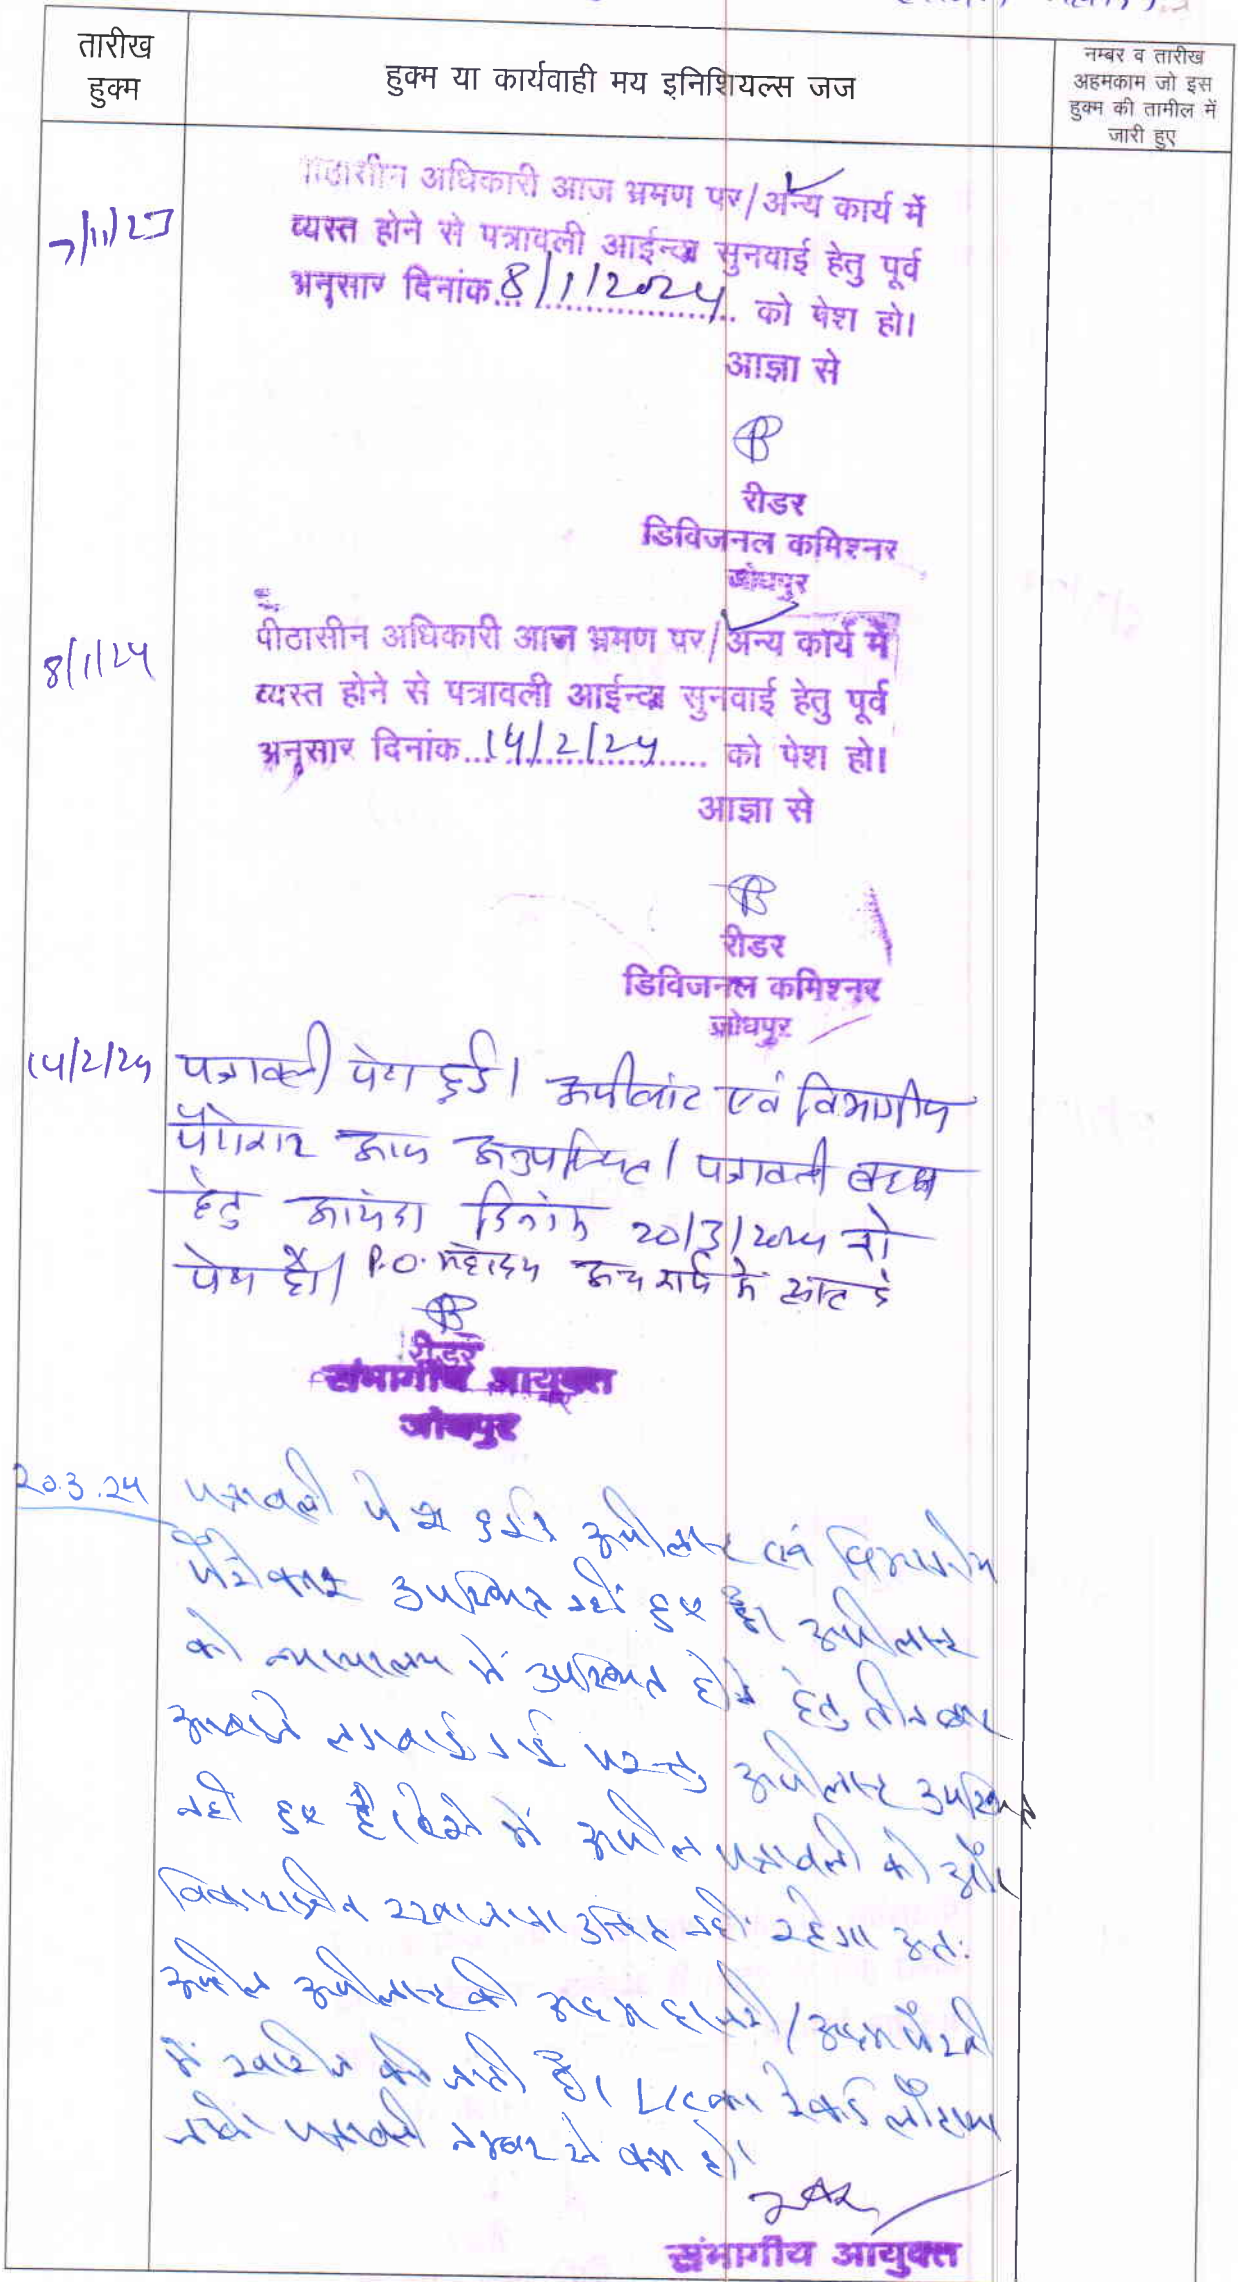 तारीख
हुक्म
हुक्म या कार्यवाही मय इनिशियल्स जज
नम्बर व तारीख
अहमकाम जो इस
हुक्म की तामील में
जारी हुए
7/11/23
पीठासीन अधिकारी आज भ्रमण पर/अन्य कार्य में
व्यस्त होने से पत्रावली आईन्दा सुनवाई हेतु पूर्व
अनुसार दिनांक...8/1/2024... को पेश हो।
आज्ञा से
रीडर
डिविजनल कमिश्नर
जोधपुर
8/1/24
पीठासीन अधिकारी आज भ्रमण पर/अन्य कार्य में
व्यस्त होने से पत्रावली आईन्दा सुनवाई हेतु पूर्व
अनुसार दिनांक...14/2/24... को पेश हो।
आज्ञा से
रीडर
डिविजनल कमिश्नर
जोधपुर
14/2/24 पत्रावली पेश हुई। अपीलांट एवं विभागीय
पैरोकार आज अनुपस्थित। पत्रावली बहस
हेतु आयंदा दिनांक 20/3/2024 को
पेश हो। P.O. महोदय अन्य कार्य में व्यस्त है
रीडर
संभागीय आयुक्त
जोधपुर
20.3.24 पत्रावली पेश हुई। अपीलान्ट एवं विभागीय
पैरोकार उपस्थित नहीं हुए है। अपीलान्ट
को न्यायालय में उपस्थित होने हेतु तीन बार
आवाजे लगवाई गई परन्तु अपीलान्ट उपस्थित
नही हुए है। ऐसे में अपील पत्रावली को और
विचाराधीन रखा जाना उचित नहीं रहेगा अतः
अपील अपीलान्ट की अदम हाजरी/अदम पैरवी
में खारीज की जाती है। L/C का रेकर्ड लौटाया
जावे। पत्रावली नम्बर से कम हो।
संभागीय आयुक्त